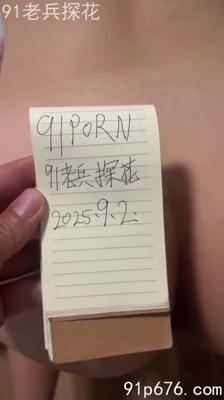 91老兵探花
91PORN
91老兵探花
2025.9.2.
91p676.com